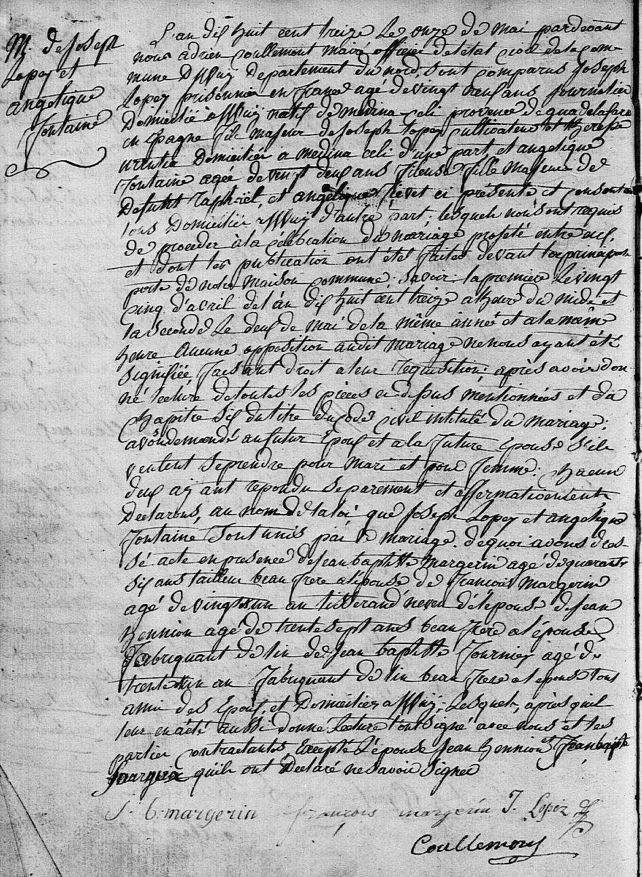 M. de Joseph
Lopez et
angelique
Fontaine
L'an dix huit cent treize Le onze de mai pardevant
nous adrien Coullemont maire officier de l'état civil de la com
mune département du nord, sont comparus Joseph
Lopez prisonnier en France agé de vingt ans journalier
Domicilié natif de medina celi province de guadalaxara
en Espagne fils majeur de Joseph Lopez cultivateur et therese
Domiciliés a medina celi d'une part et angelique
Fontaine agée de vingt deux ans fileuse fille majeure de
Defunt raphaël, et angelique ci présente et consent
tous Domiciliés d'autre part. lesquels nous ont requis
de proceder à la célébration du mariage projeté entre eux
et dont les publication ont été faites devant la principale
porte de notre maison commune. savoir: la première le vingt
cinq d'avril de l'an dix huit cent treize a heure du midi et
la seconde le deux de mai de la même année et a la même
heure Aucune opposition audit mariage ne nous ayant été
signifiée faisant droit a leur requisition: après avoir don
né lecture de toutes les pièces ci dessus mentionnées et du
Chapitre six du titre du code civil intitulé du mariage.
avons demandé au futur Epoux et a la future Epouse s'ils
veulent se prendre pour mari et pour femme: chacun
deux ayant repondu separement et affirmativement
Declarons, au nom de la loi que Joseph Lopez et angelique
Fontaine sont unis par le mariage. de quoi avons dres
sé acte en presence de Jean baptiste Margerin agé de quarante
six ans tailleur beau frere a l'épouse de François Margerin
agé de vingt un an tisserand neveu de l'épouse de Jean
Hennion agé de trente sept ans beau frere a l'épouse,
Fabriquant de lin de Jean baptiste Fournier agé de
trente un an Fabriquant de lin beau frere et tous
amis des Epoux, et Domiciliés Lesquels, après qu'il
leur en a été aussi donné lecture l'ont signé avec nous et les
parties contractantes Excepté l'épouse Jean Hennion et Jean baptiste
qu'ils ont declaré ne savoir signer
J. b. margerin françois margerin J. Lopez
Coullemont